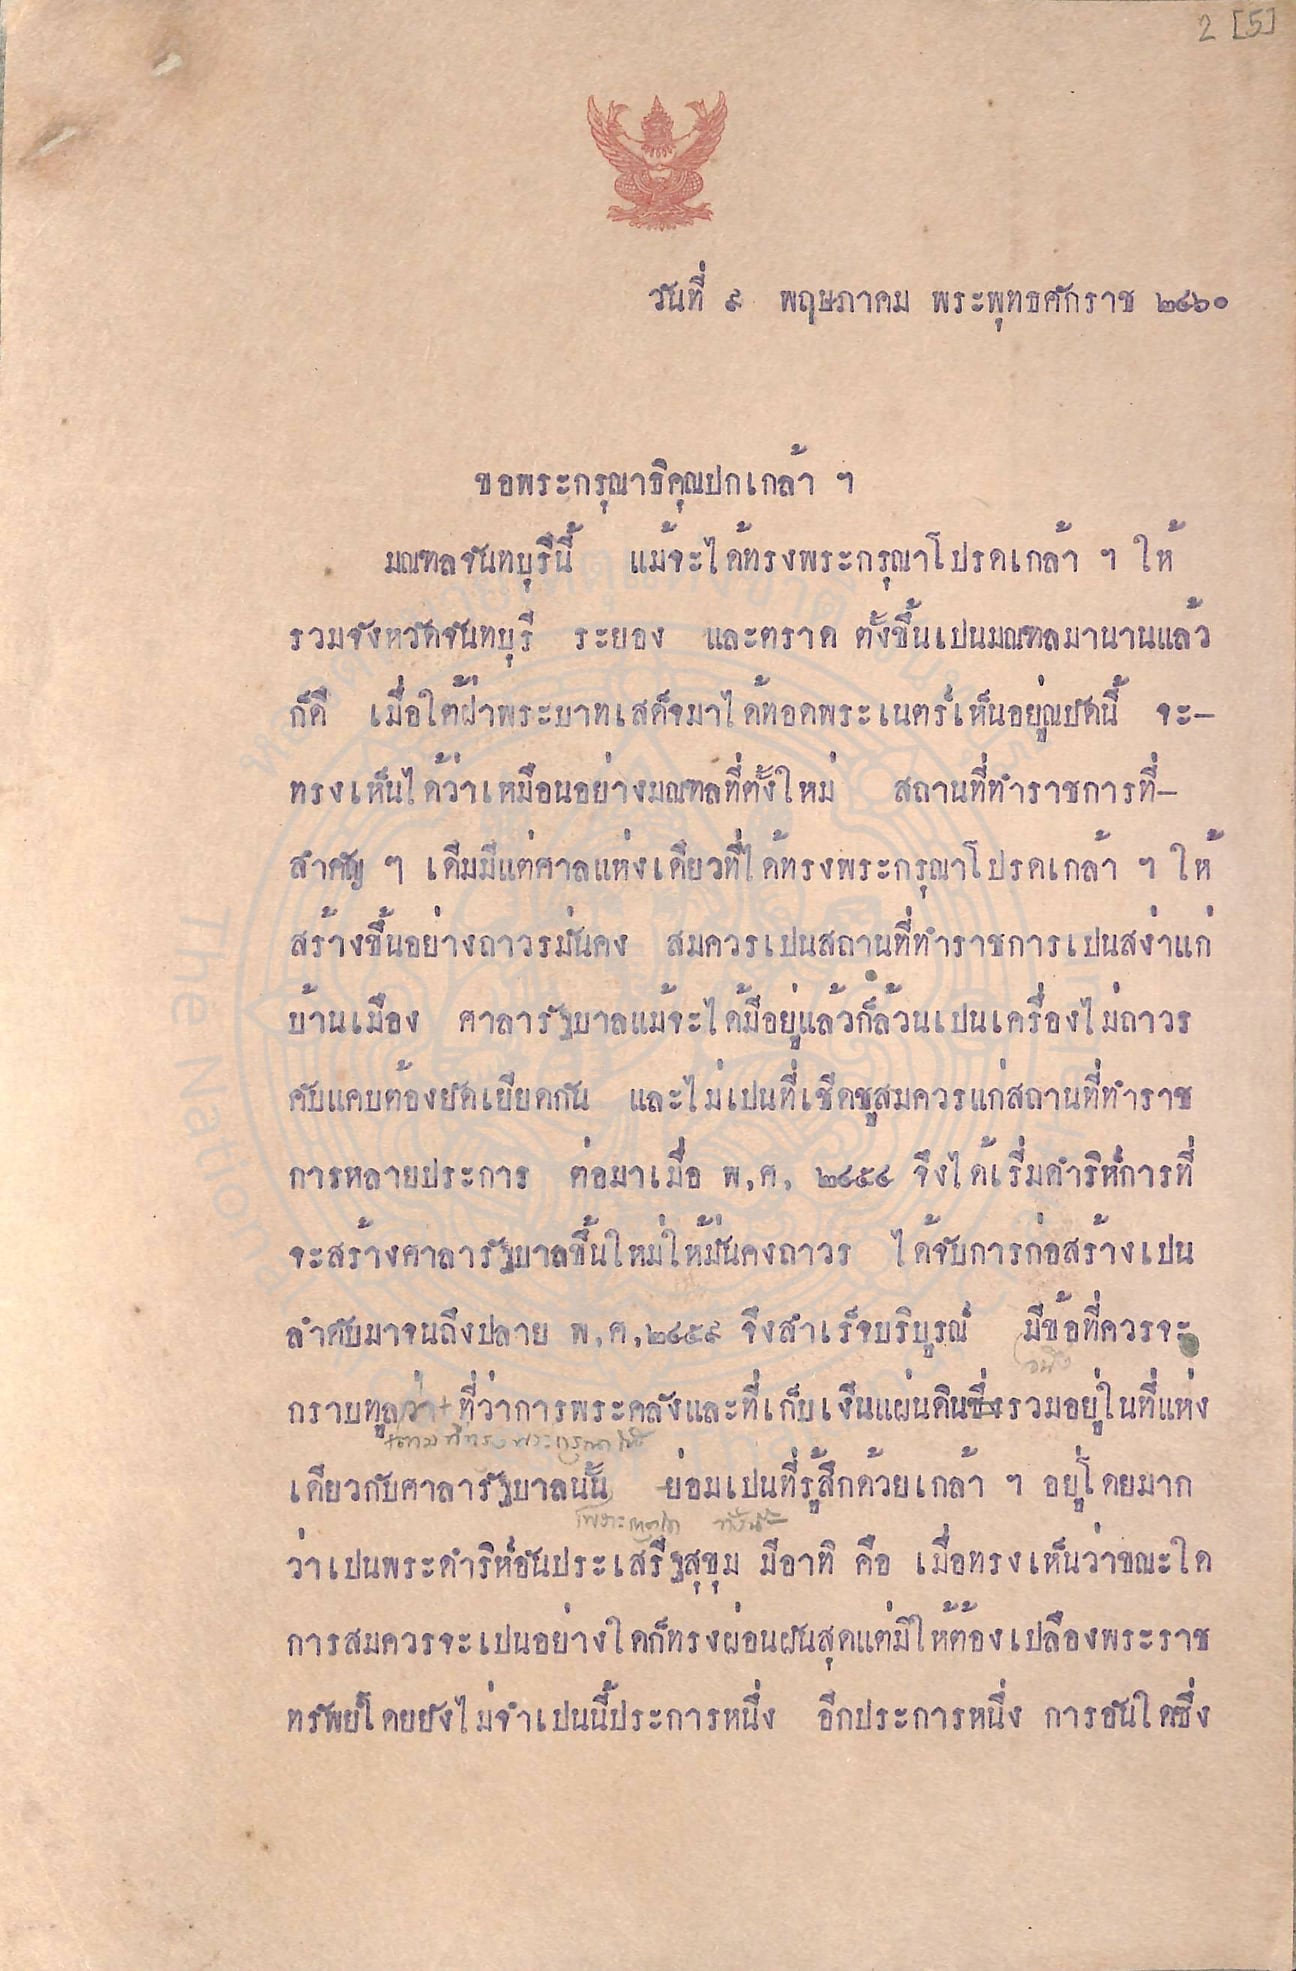 2 [5]
วันที่ ๙ พฤษภาคม พระพุทธศักราช ๒๔๖๐
ขอพระกรุณาธิคุณปกเกล้า ฯ
มณฑลจันทบุรีนี้ แม้จะได้ทรงพระกรุณาโปรดเกล้า ฯ ให้
รวมจังหวัดจันทบุรี ระยอง และตราด ตั้งขึ้นเปนมณฑลมานานแล้ว
ก็ดี เมื่อใต้ฝ่าพระบาทเสด็จมาได้ทอดพระเนตร์เห็นอยู่ณบัดนี้ จะ–
ทรงเห็นได้ว่าเหมือนอย่างมณฑลที่ตั้งใหม่ สถานที่ทำราชการที่–
สำคัญ ๆ เดิมมีแต่ศาลแห่งเดียวที่ได้ทรงพระกรุณาโปรดเกล้า ฯ ให้
สร้างขึ้นอย่างถาวรมั่นคง สมควรเปนสถานที่ทำราชการเปนสง่าแก่
บ้านเมือง ศาลารัฐบาลแม้จะได้มีอยู่แล้วก็ล้วนเปนเครื่องไม่ถาวร
คับแคบต้องยัดเยียดกัน และไม่เปนที่เชิดชูสมควรแก่สถานที่ทำราช
การหลายประการ ต่อมาเมื่อ พ,ศ, ๒๔๕๔ จึงได้เริ่มดำริห์การที่
จะสร้างศาลารัฐบาลขึ้นใหม่ให้มั่นคงถาวร ได้จับการก่อสร้างเปน
ลำดับมาจนถึงปลาย พ,ศ,๒๔๕๙ จึงสำเร็จบริบูรณ์ มีข้อที่ควรจะ
กราบทูลว่า ที่ว่าการพระคลังและที่เก็บเงินแผ่นดินซึ่งรวมอยู่ในที่แห่ง
เดียวกับศาลารัฐบาลนั้น ย่อมเปนที่รู้สึกด้วยเกล้า ฯ อยู่โดยมาก
ว่าเปนพระดำริห์อันประเสริฐสุขุม มีอาทิ คือ เมื่อทรงเห็นว่าขณะใด
การสมควรจะเปนอย่างใดก็ทรงผ่อนผันสุดแต่มิให้ต้องเปลืองพระราช
ทรัพย์โดยยังไม่จำเปนนี้ประการหนึ่ง อีกประการหนึ่ง การอันใดซึ่ง